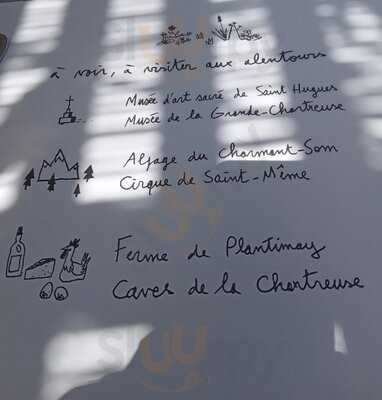 à voir, à visiter aux alentours
Musée d'art sacré de Saint Hugues
Musée de la Grande-Chartreuse
Alpage du Charmant-Som
Cirque de Saint-Même
Ferme de Plantimay
Caves de la Chartreuse